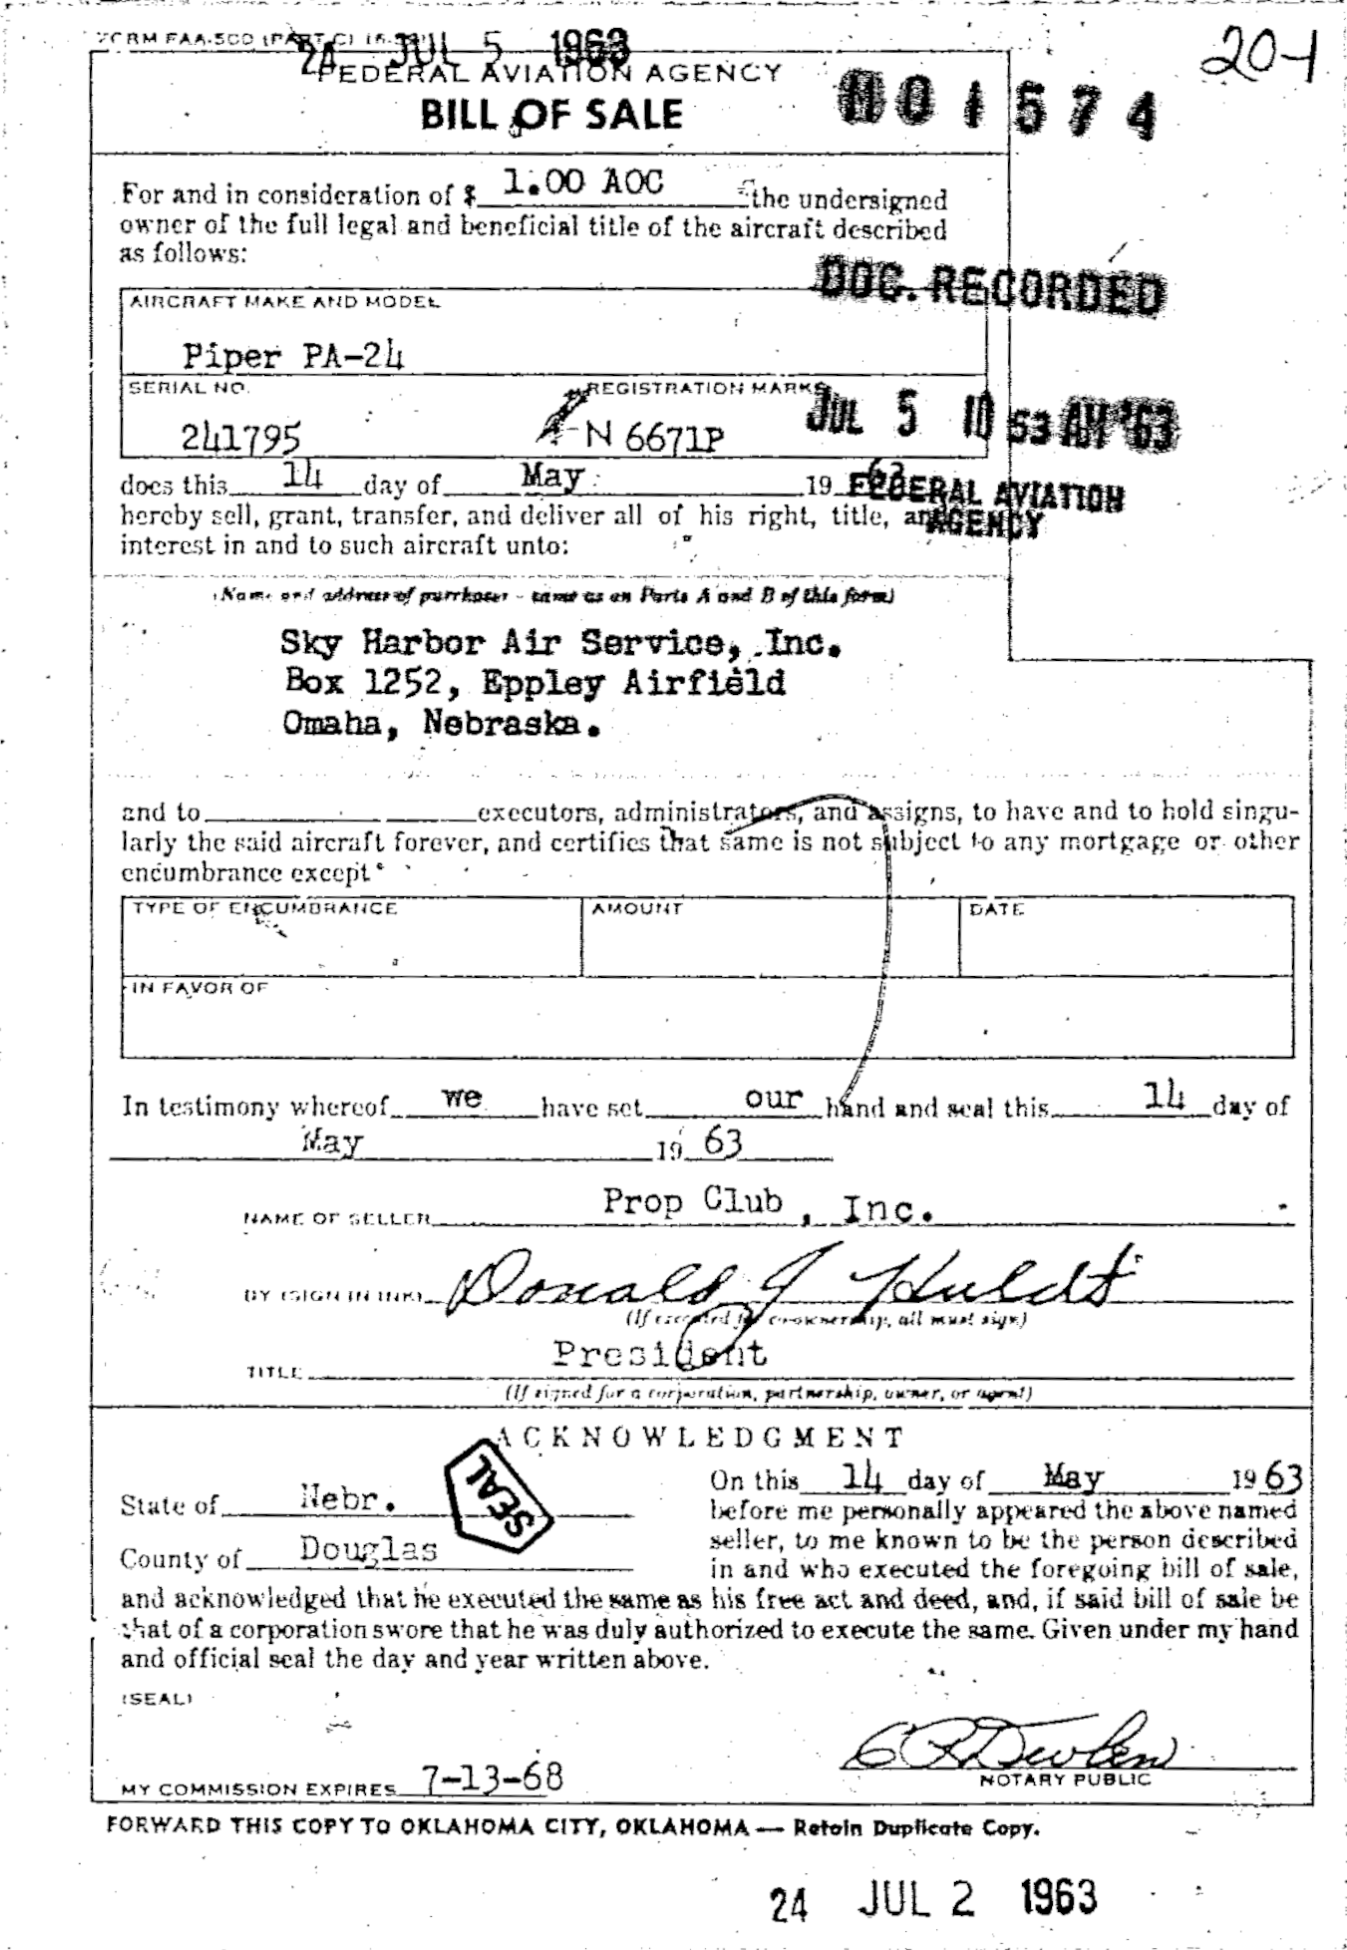 FORM FAA-500 (PART C)
24 JUL 5 1963
20-1
FEDERAL AVIATION AGENCY
BILL OF SALE
M01574
For and in consideration of $ 1.00 AOC the undersigned
owner of the full legal and beneficial title of the aircraft described
as follows:
DOC. RECORDED
AIRCRAFT MAKE AND MODEL
Piper PA-24
SERIAL NO.
REGISTRATION MARKS
JUL 5 10 53 AM '63
241795
N 6671P
does this 14 day of May 19 63
FEDERAL AVIATION
AGENCY
hereby sell, grant, transfer, and deliver all of his right, title, and
interest in and to such aircraft unto:
(Name and address of purchaser - same as on Parts A and B of this form)
Sky Harbor Air Service, Inc.
Box 1252, Eppley Airfield
Omaha, Nebraska.
and to executors, administrators, and assigns, to have and to hold singu-
larly the said aircraft forever, and certifies that same is not subject to any mortgage or other
encumbrance except
TYPE OF ENCUMBRANCE
AMOUNT
DATE
IN FAVOR OF
In testimony whereof we have set our hand and seal this 14 day of
May 19 63
NAME OF SELLER Prop Club , Inc.
BY (SIGN IN INK) Donald J Huldt
(If executed for co-ownership, all must sign)
TITLE President
(If signed for a corporation, partnership, owner, or agent)
ACKNOWLEDGMENT
SEAL
State of Nebr.
County of Douglas
On this 14 day of May 19 63
before me personally appeared the above named
seller, to me known to be the person described
in and who executed the foregoing bill of sale,
and acknowledged that he executed the same as his free act and deed, and, if said bill of sale be
that of a corporation swore that he was duly authorized to execute the same. Given under my hand
and official seal the day and year written above.
(SEAL)
NOTARY PUBLIC
MY COMMISSION EXPIRES 7-13-68
FORWARD THIS COPY TO OKLAHOMA CITY, OKLAHOMA — Retain Duplicate Copy.
24 JUL 2 1963